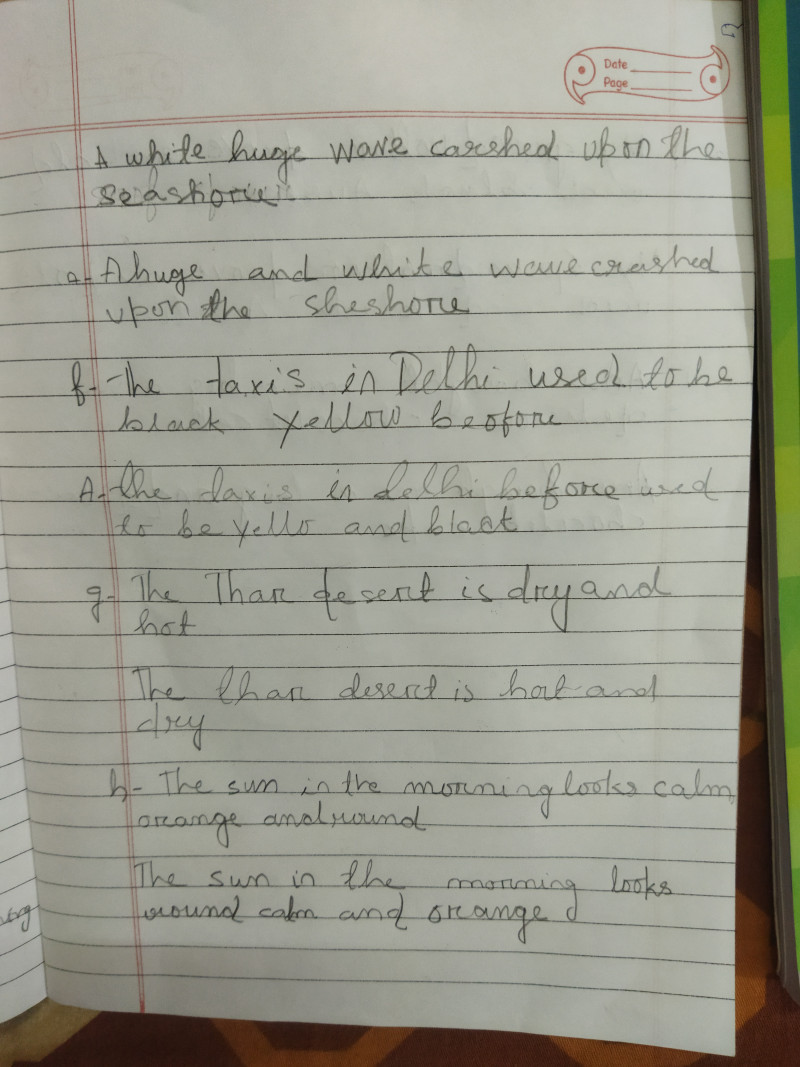 Date
Page
A white huge wave carshed upon the
seashore
a- A huge and white wave crashed
upon the sheshore
f- The taxis in Delhi used to be
black yellow beofore
A- the taxis in delhi before used
to be yello and blact
g- The Thar desert is dry and
hot
The thar desert is hot and
dry
h- The sun in the morning looks calm,
orange and round
The sun in the morning looks
round calm and orange